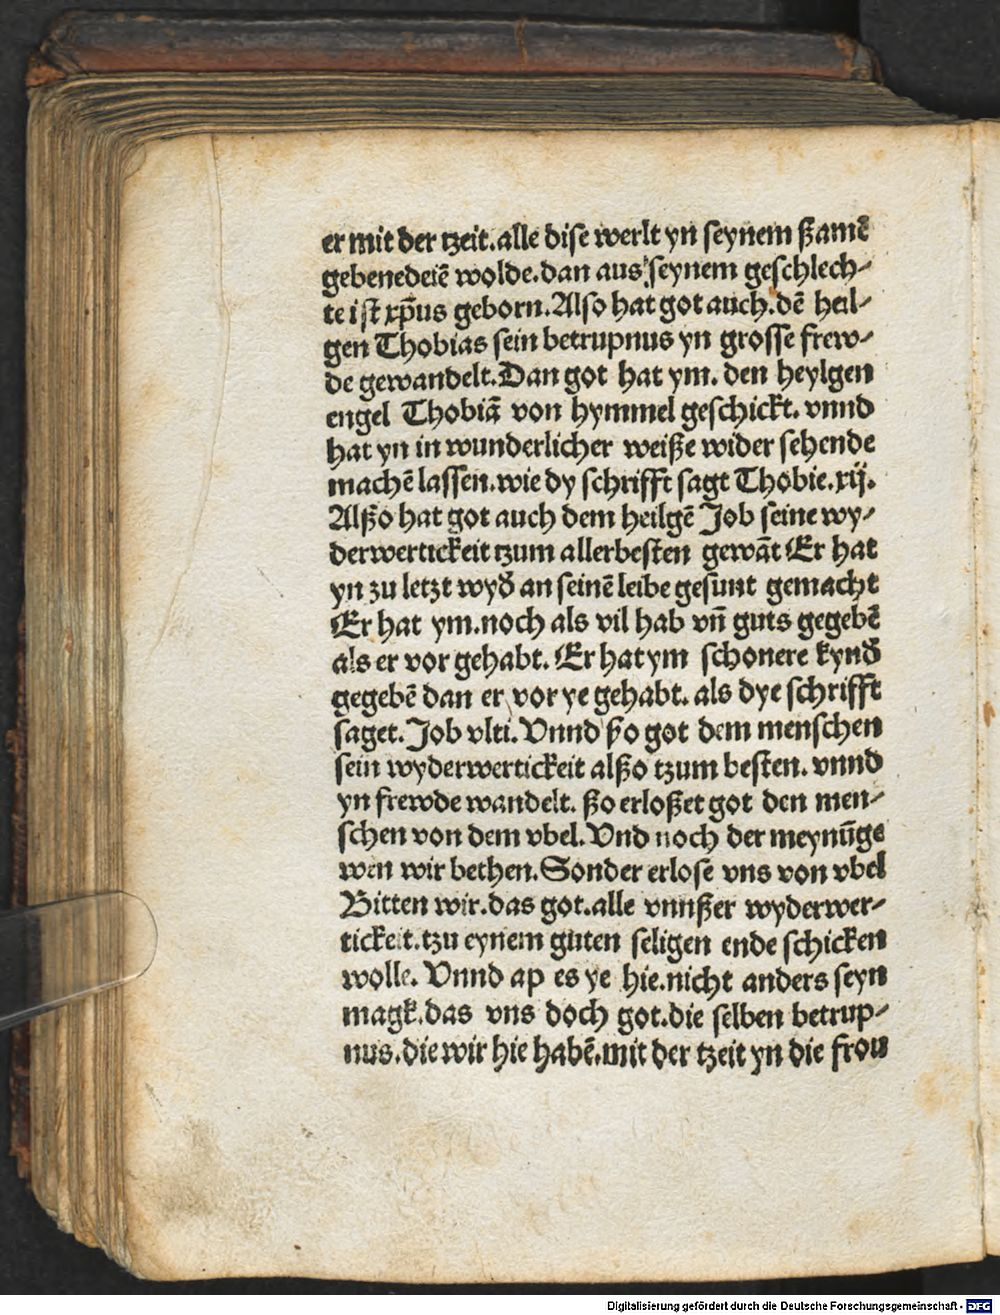 er mit der tzeit.alle dise werlt yn seynem ßamē
gebenedeiē wolde.dan aus seynem geschlech⸗
te ist xp̄us geborn.Also hat got auch.dē heil⸗
gen Thobias sein betrupnus yn grosse frew⸗
de gewandelt.Dan got hat ym. den heylgen
engel Thobiā von hymmel geschickt. vnnd
hat yn in wunderlicher weiße wider sehende
machē lassen.wie dy schrifft sagt Thobie.xij.
Alßo hat got auch dem heilgē Job seine wy⸗
derwertickeit tzum allerbesten gewāt Er hat
yn zu letzt wyđ an seinē leibe gesunt gemacht
Er hat ym.noch als vil hab vn̄ guts gegebē
als er vor gehabt. Er hat ym schonere kynđ
gegebē dan er vor ye gehabt. als dye schrifft
saget. Job vlti. Vnnd ßo got dem menschen
sein wyderwertickeit alßo tzum besten. vnnd
yn frewde wandelt. ßo erloßet got den men⸗
schen von dem vbel. Vnd noch der meynūge
wen wir bethen. Sonder erlose vns von vbel
Bitten wir.das got.alle vnnßer wyderwer⸗
tickeit.tzu eynem guten seligen ende schicken
wolle. Vnnd ap es ye hie.nicht anders seyn
magk.das vns doch got.die selben betrup⸗
nus.die wir hie habē.mit der tzeit yn die frou
Digitalisierung gefördert durch die Deutsche Forschungsgemeinschaft - DFG